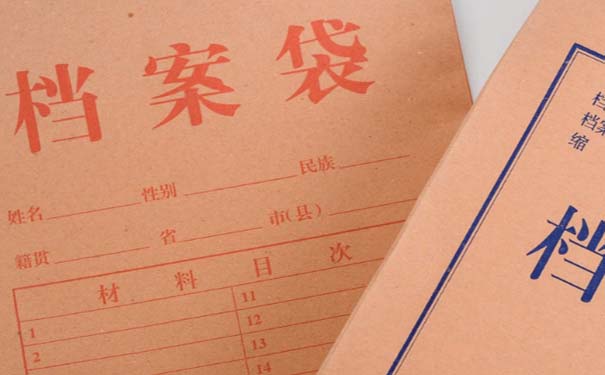 档案袋
姓名 性别 民族
籍贯 省 市(县)
材料目次
1 11
2 12
13
14
档
档案
缩
档